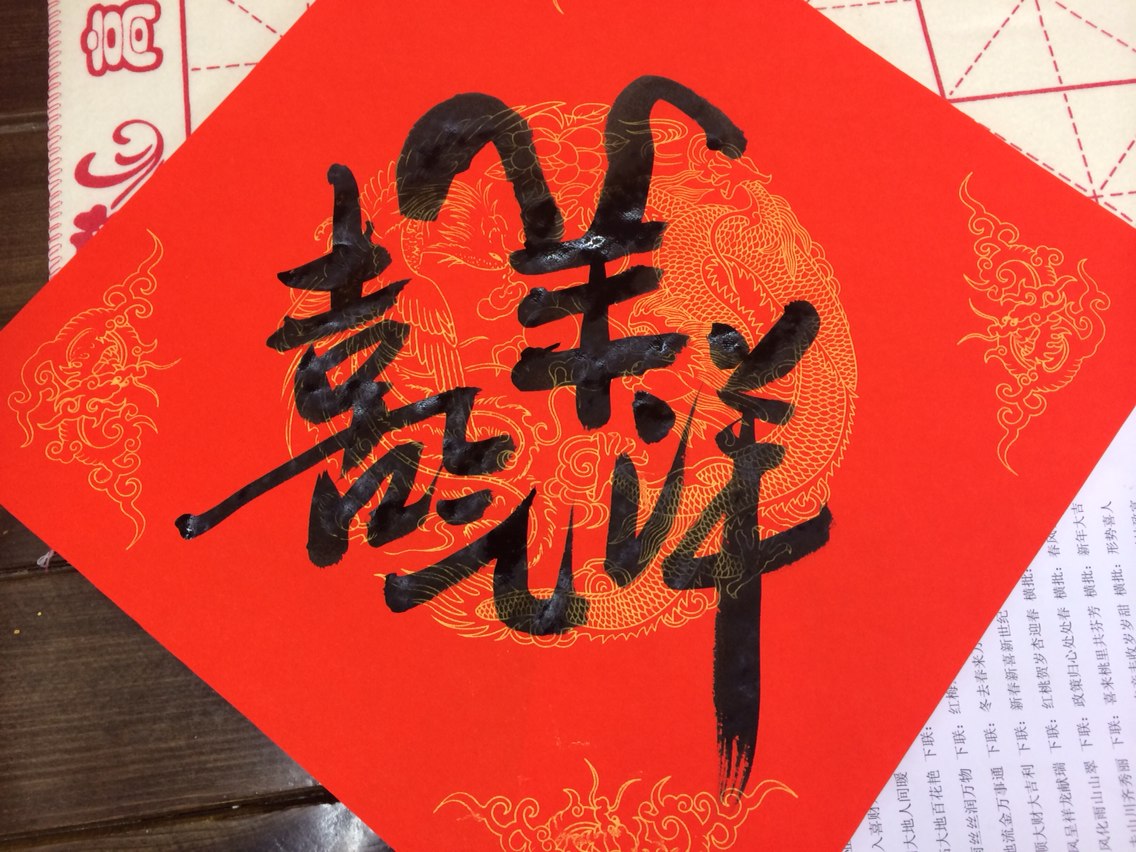 喜气羊洋
入喜财
大地人间暖
大地百花艳 下联:
雨丝丝润万物 下联: 红梅
地流金万事通 下联: 冬去春来万
顺大财大吉利 下联: 新春新喜新世纪
凤呈祥龙献瑞 下联: 红桃贺岁杏迎春 横批: 春风
风化雨山山翠 下联: 政策归心处处春 横批: 新年大吉
山川齐秀丽 下联: 喜来桃里共芬芳 横批: 形势喜人